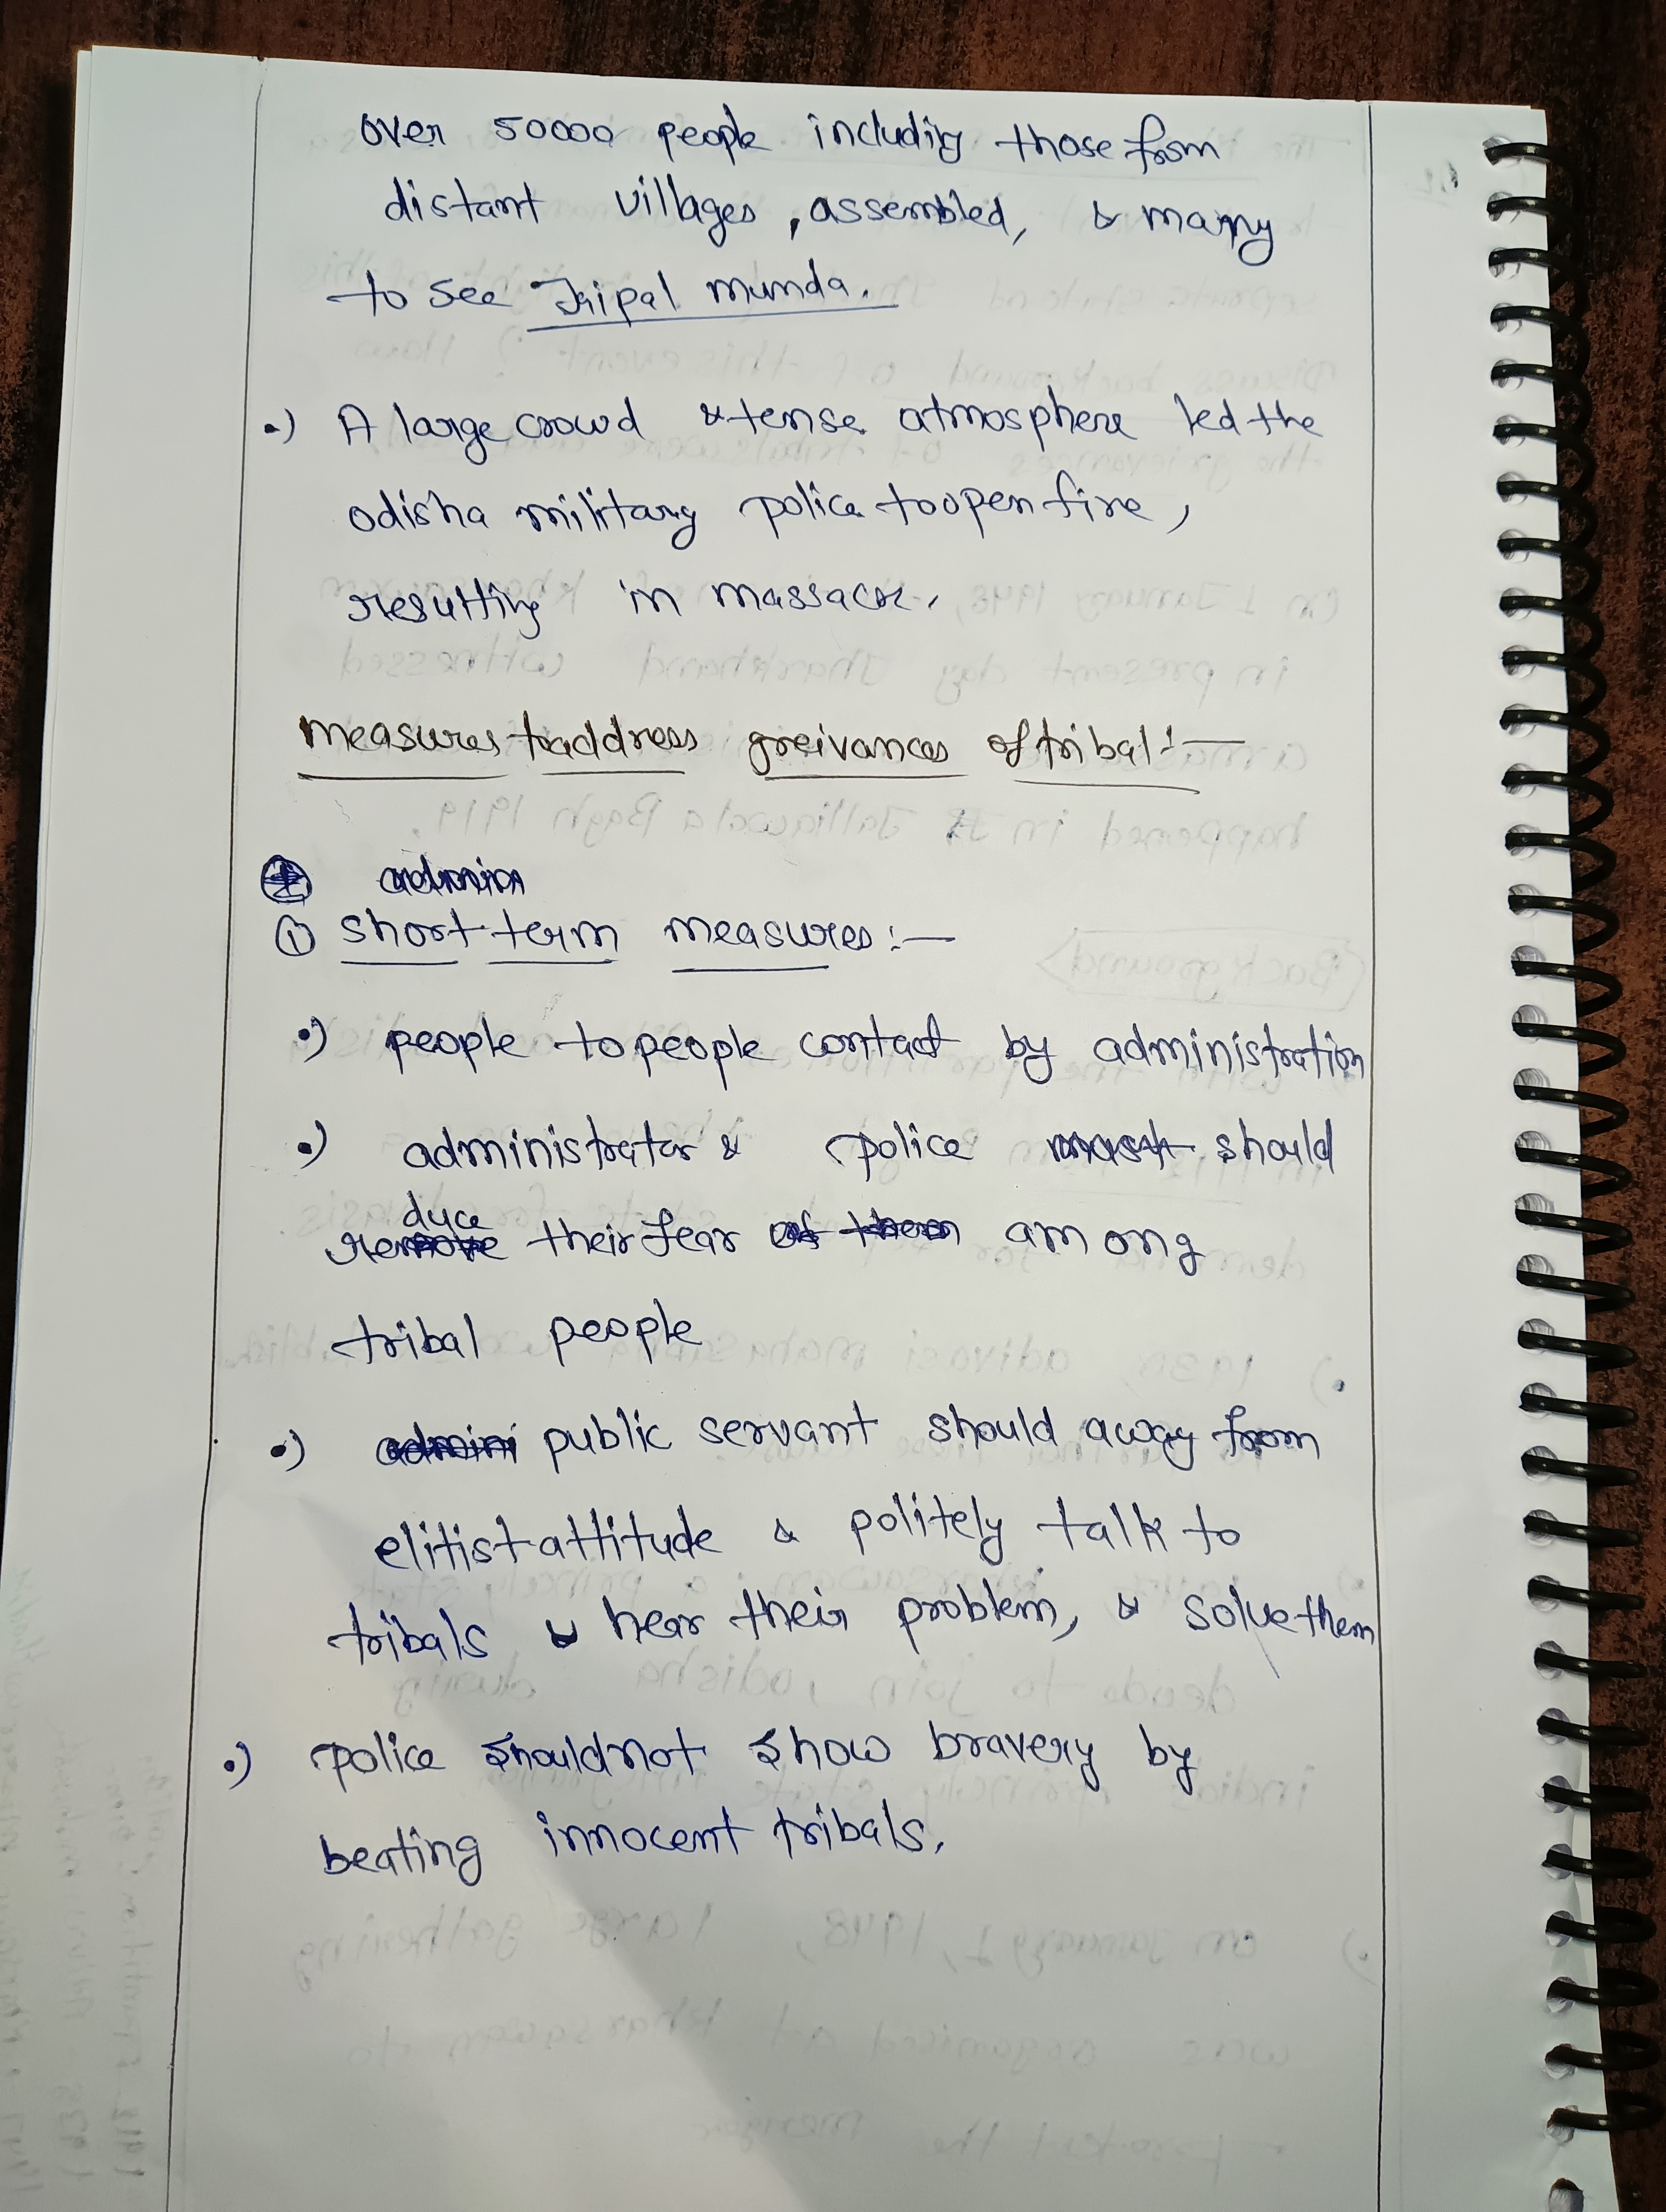 over 50000 people including those from
distant villages, assembled, & many
to see Jaipal munda.
•) A large crowd & tense atmosphere led the
odisha military police to open fire,
resulting in massacre.
measures to address greivances of tribal:—
admin
① short-term measures:—
•) people to people contact by administration
•) administrator & police must should
reduce their fear of them among
tribal people
•) admini public servant should away from
elitist attitude & politely talk to
tribals & hear their problem, & solve them
•) police should not show bravery by
beating innocent tribals.